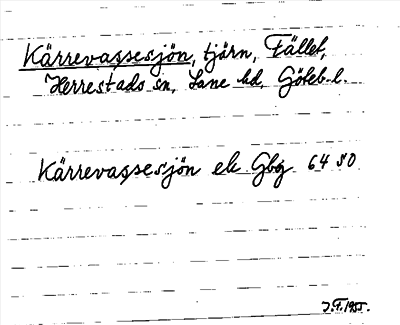 Kärrevassesjön, tjärn, Fället,
Herrestads sn, Lane hd, Göteb. l.
Kärrevassesjön ek Gbg 64 SO
J.F. 1955.